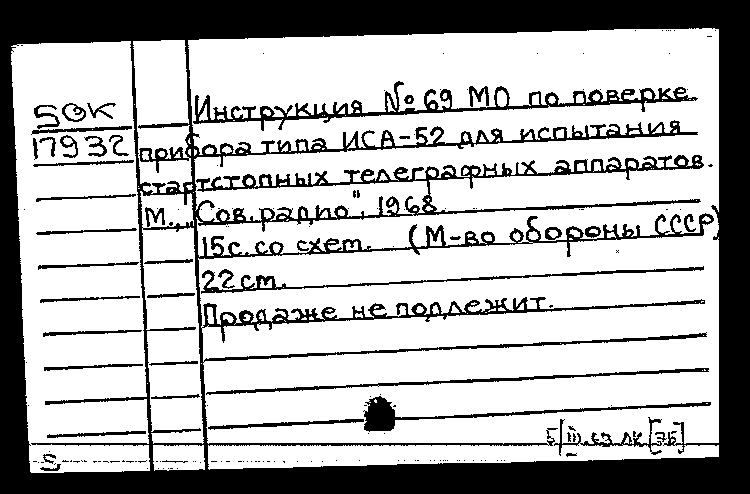 50К
17932
Инструкция № 69 МО по поверке
прибора типа ИСА-52 для испытания
стартстопных телеграфных аппаратов.
М., „Сов. радио", 1968.
15с. со схем. (М-во обороны СССР)
22 см.
Продаже не подлежит.